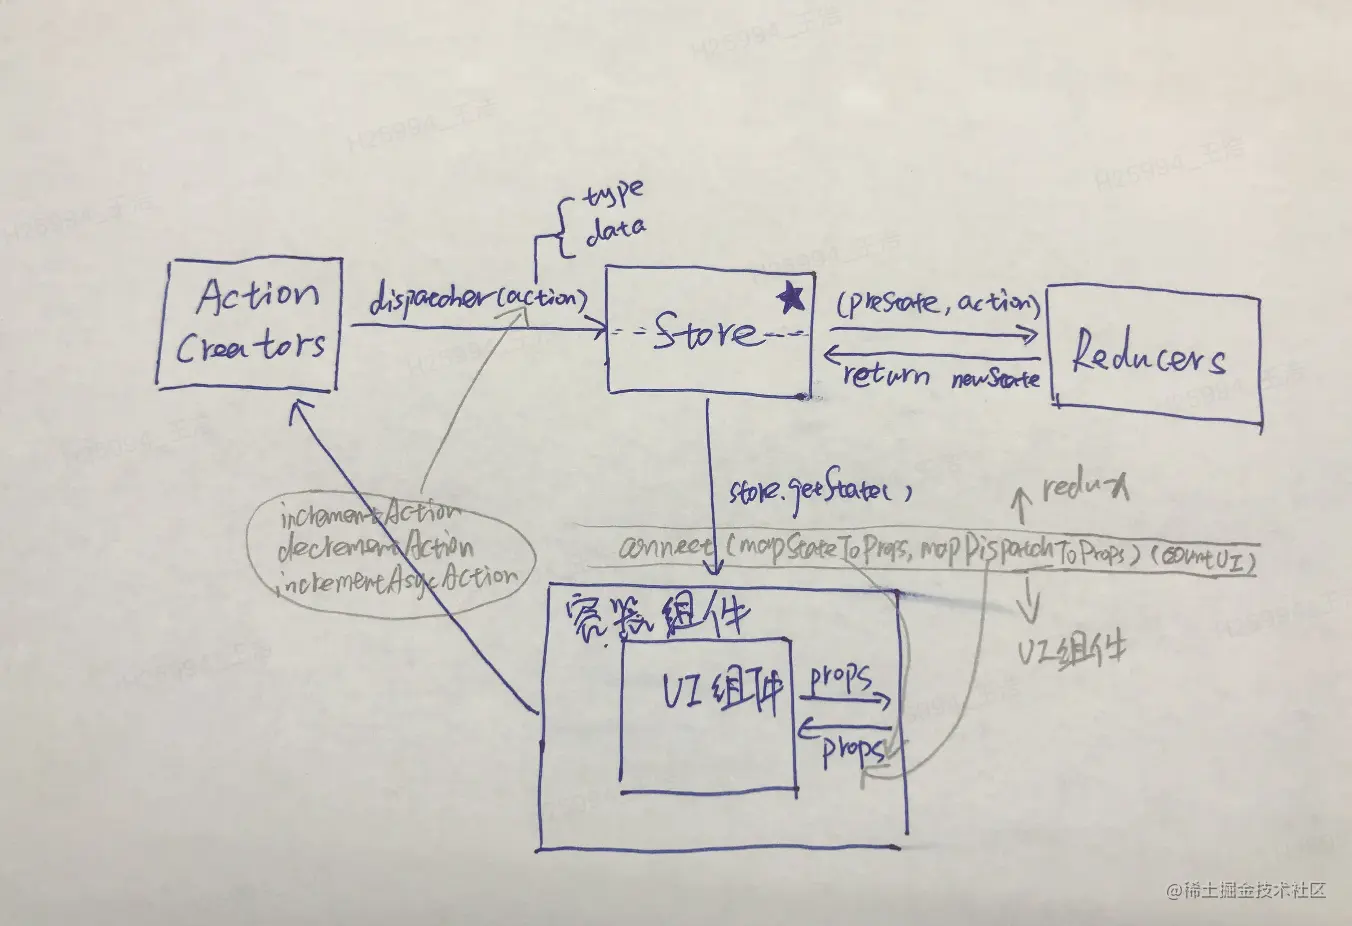 type
data
Action
Creators
dispatcher(action)
Store
(preState, action)
return newState
Reducers
store.getState()
redux
incrementAction
decrementAction
incrementAsycAction
connect (mapStateToProps, mapDispatchToProps) (countUI)
容器组件
UI组件
UI组件
props
props
@稀土掘金技术社区